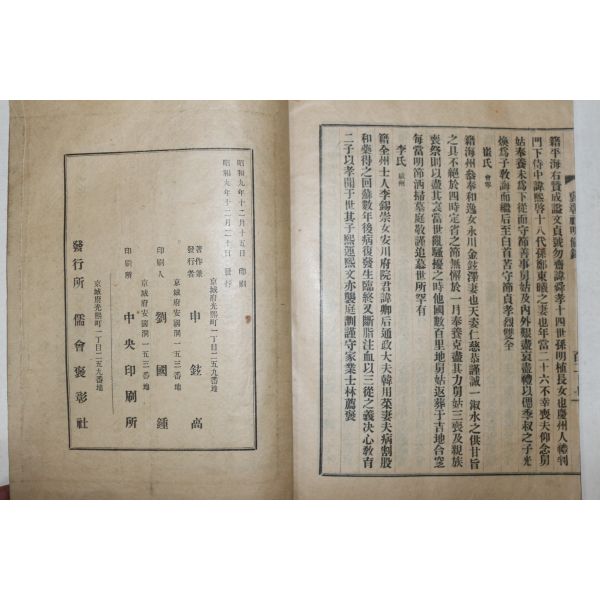 籍平海右贊成諡文貞號勿齋諱舜孝十四孫明植長女也慶州人禮判
門下侍中諱熙啓十八代孫鄭東曦之妻也年當二十六不幸喪夫仰念舅
姑奉養未爲下從而守節善事舅姑及內外艱盡哀盡禮以偲季叔之子光
煥爲子敎誨而繼后至白首苦守節貞孝烈雙全
崔氏
籍海州參奉和逸女永川金鉉澤妻也天姿仁慈恭謹誠一淑水之供甘旨
之具不絕於四時定省之節無懈於一月奉養克盡其力舅姑三喪及親族
喪祭則以盡其哀當世亂騷擾之時他國數百里地舅姑返葬于吉地合窆
每當明節洒掃墓庭敬謹追慕世所罕有
李氏
籍全州士人李錫崇女安川府院君諱卿后通政大夫韓用菜妻夫病割股
和藥得之回蘇數年後病復發生臨終又斷脂注血以三從之義決心敎育
二子以孝聞于世其子熙運熙文亦襲庭訓謹守家業士林薦褒
昭和九年十二月十五日 印刷
昭和九年十二月二十日 發行
京城府光熙町一丁目二五九番地
著作兼發行者 申鉉高
京城府安國洞一五三番地
印刷人 劉國鍾
京城府安國洞一五三番地
印刷所 中央印刷所
京城府光熙町一丁目二五九番地
發行所 儒會褒彰社